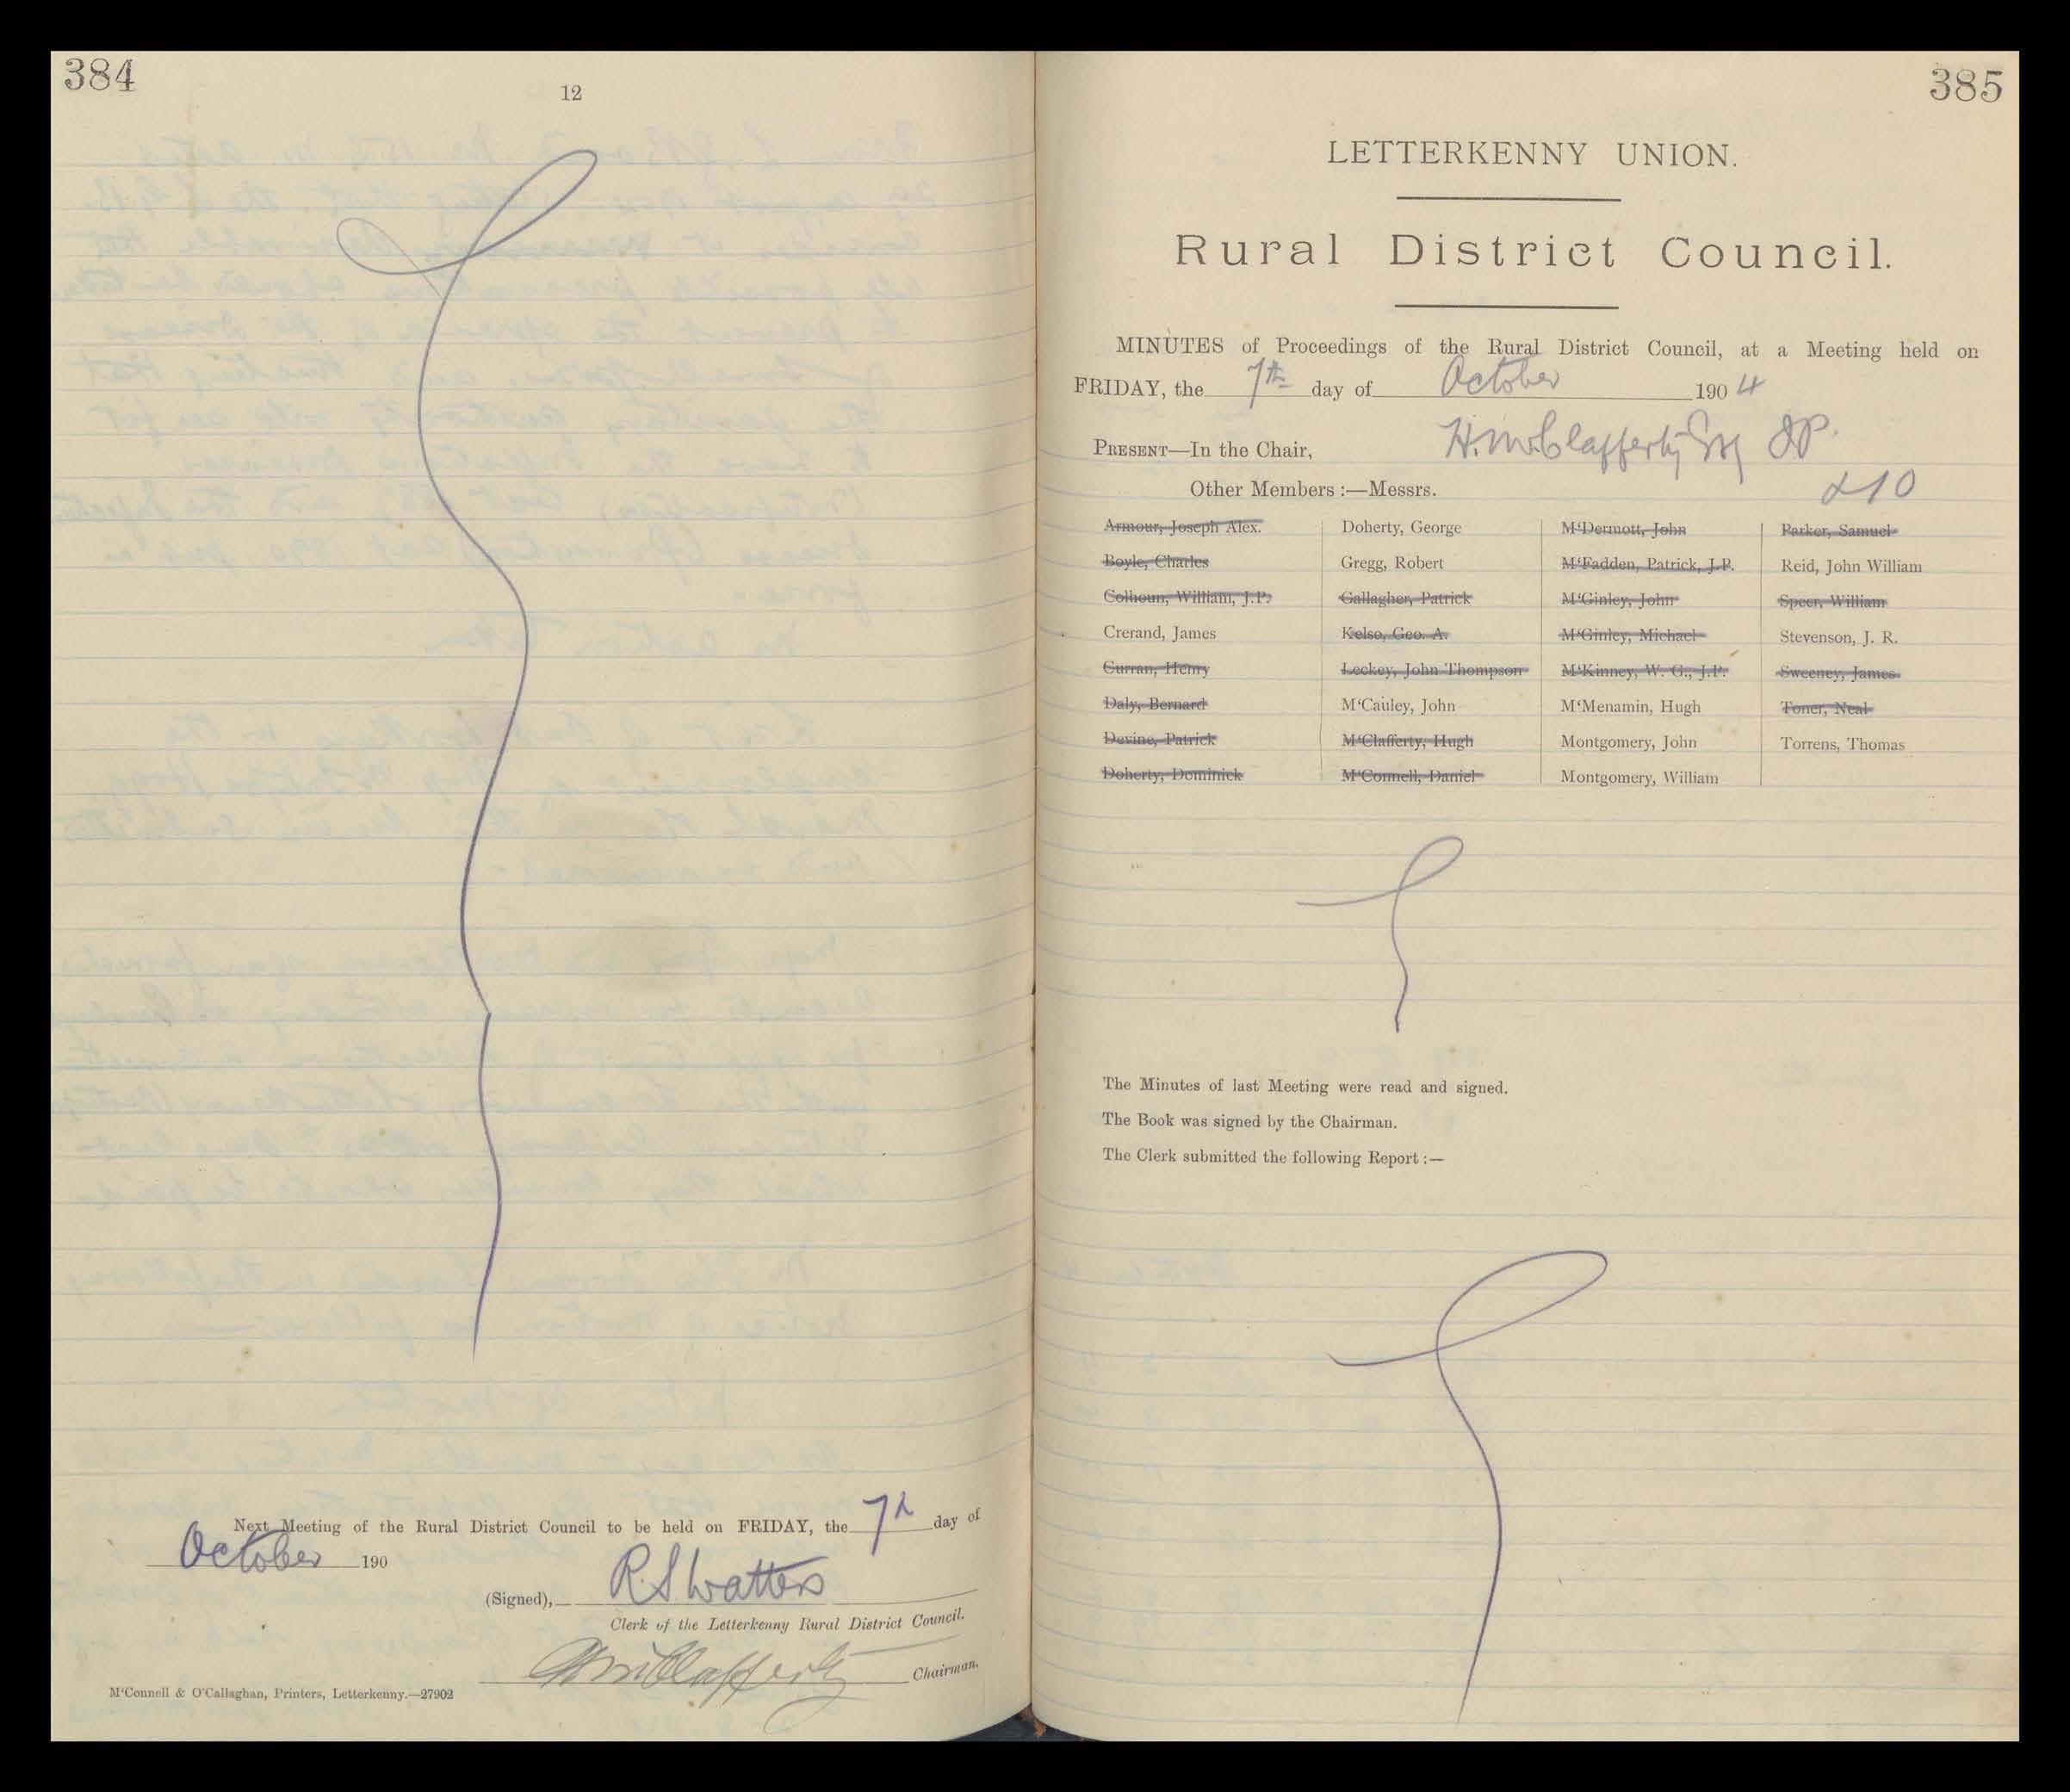 384
12
Next Meeting of the Rural District Council to be held on FRIDAY, the 7th day of
October 190
(Signed), R. S. Watters
Clerk of the Letterkenny Rural District Council.
H McClafferty Chairman.
M‘Connell & O'Callaghan, Printers, Letterkenny.—27902
385
LETTERKENNY UNION.
Rural District Council.
MINUTES of Proceedings of the Rural District Council, at a Meeting held on
FRIDAY, the 7th day of October 1904
PRESENT—In the Chair, H. McClafferty Esq JP.
Other Members :—Messrs. & 10
Armour, Joseph Alex. Doherty, George M‘Dermott, John Parker, Samuel
Boyle, Charles Gregg, Robert M‘Fadden, Patrick, J.P. Reid, John William
Colhoun, William, J.P. Gallagher, Patrick M‘Ginley, John Speer, William
Crerand, James Kelso, Geo. A. M‘Ginley, Michael Stevenson, J. R.
Curran, Henry Leckey, John Thompson M‘Kinney, W. G., J.P. Sweeney, James
Daly, Bernard M‘Cauley, John M‘Menamin, Hugh Toner, Neal
Devine, Patrick M‘Clafferty, Hugh Montgomery, John Torrens, Thomas
Doherty, Dominick M‘Connell, Daniel Montgomery, William
The Minutes of last Meeting were read and signed.
The Book was signed by the Chairman.
The Clerk submitted the following Report :—